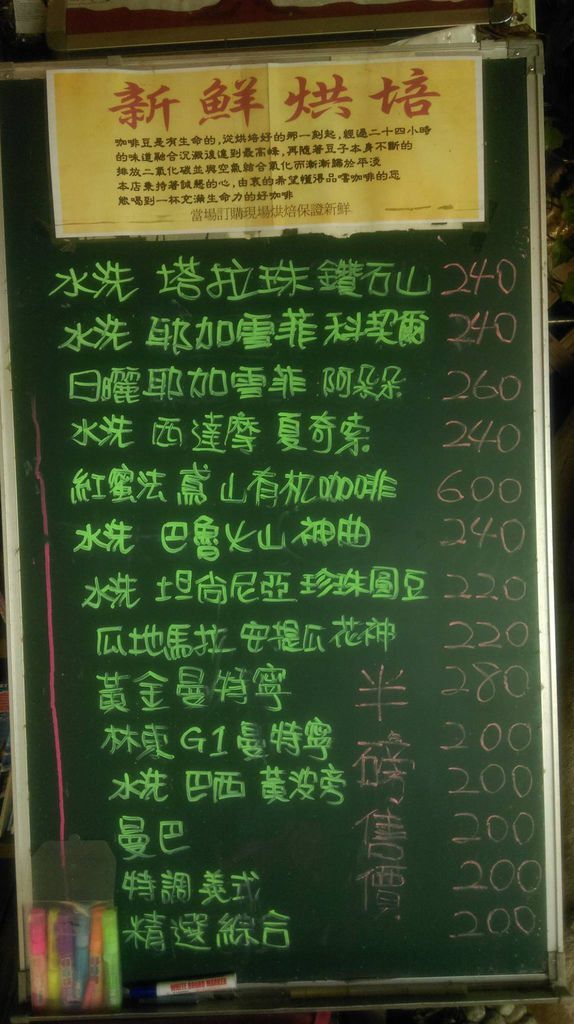 新鮮烘培
咖啡豆是有生命的,從烘培好的那一刻起,經過二十四小時
的味道融合沉澱後達到最高峰,再隨著豆子本身不斷的
排放二氧化碳並與空氣結合氧化而漸漸歸於平淡
本店秉持著誠懇的心,由衷的希望懂得品嚐咖啡的您
能喝到一杯充滿生命力的好咖啡
當場訂購現場烘焙保證新鮮
水洗 塔拉珠鑽石山 240
水洗 耶加雪菲科契爾 240
日曬耶加雪菲 阿朵朵 260
水洗 西達摩 夏奇索 240
紅蜜法 鳶山有机咖啡 600
水洗 巴魯火山 神曲 240
水洗 坦尚尼亞 珍珠圓豆 220
瓜地馬拉 安提瓜花神 220
黃金曼特寧 280
林東G1曼特寧 200
水洗 巴西 黃波旁 200
曼巴 200
特調義式 200
精選綜合 200
半磅售價
WHITE BOARD MARKER